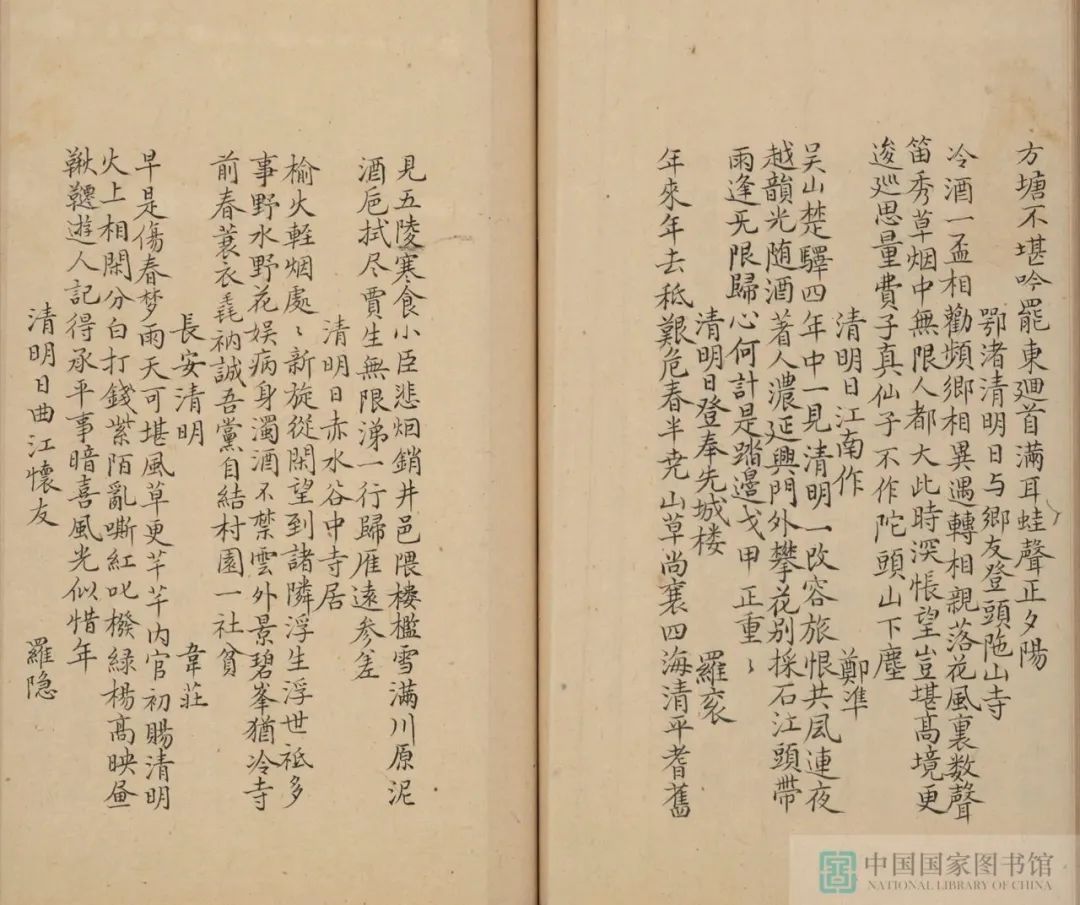 方塘不堪吟罷東廻首滿耳蛙聲正夕陽
鄂渚清明日与鄉友登頭陁山寺
冷酒一盃相勸頻鄉相異遇轉相親落花風裏数聲
笛秀草烟中無限人都大此時深悵望豈堪高境更
逡巡思量費子真仙子不作陀頭山下塵
清明日江南作 鄭準
吴山楚驛四年中一見清明一改容旅恨共風連夜
越韻光随酒著人濃延興門外攀花别採石江頭帶
雨逢无限歸心何計是踏邊戈甲正重〻
清明日登奉先城楼 羅衮
年來年去秪艱危春半尭山草尚衰四海清平耆舊
見五陵寒食小臣悲烟銷井邑隈楼檻雪滿川原泥
酒巵拭尽賈生無限涕一行歸雁遠参差
清明日赤水谷中寺居
榆火輕烟處〻新旋從閑望到諸隣浮生浮世祗多
事野水野花娱病身濁酒不禁雲外景碧峯猶冷寺
前春蓑衣毳衲誠吾黨自結村園一社貧
長安清明 韋莊
早是傷春梦雨天可堪風草更芊芊内官初賜清明
火上相閑分白打錢紫陌亂嘶紅叱撥緑楊高映𦘕
鞦韆遊人記得承平事暗喜風光似惜年
清明日曲江懷友 羅隐
中国国家图书馆
NATIONAL LIBRARY OF CHINA